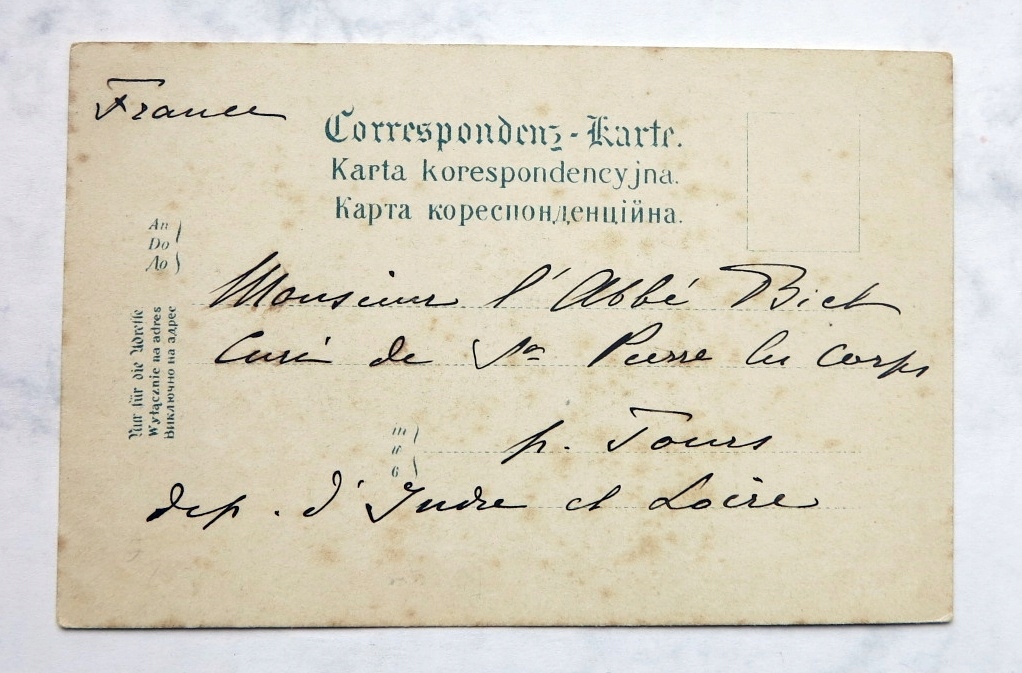 France
Correspondenz-Karte.
Karta korespondencyjna.
Карта кореспонденційна.
An
Do
До
Monsieur l'Abbé Biet
Curé de St Pierre les Corps
Nur für die Adresse
Wyłącznie na adres
Виключно на адрес
in
w
в
p. Tours
dep. d'Indre et Loire